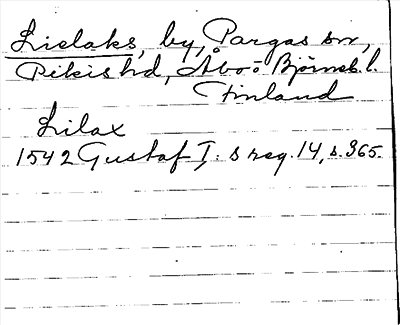 Lielaks, by, Pargas sn,
Pikis hd, Åbo o Björneb. l.
Finland
Lilax
1542 Gustaf I:s reg. 14, s. 365.